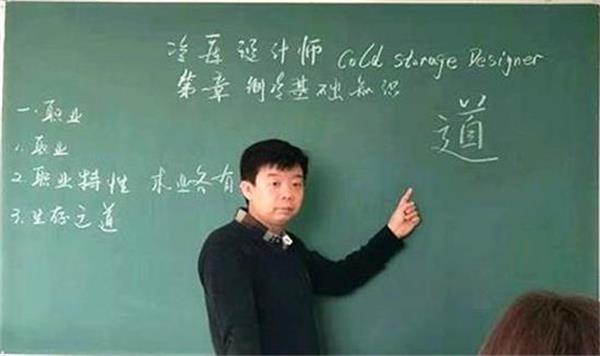 冷库设计师 Cold Storage Designer
第章 制冷基础知识
道
一.职业
1.职业
2.职业特性 术业各有
3.生存之道